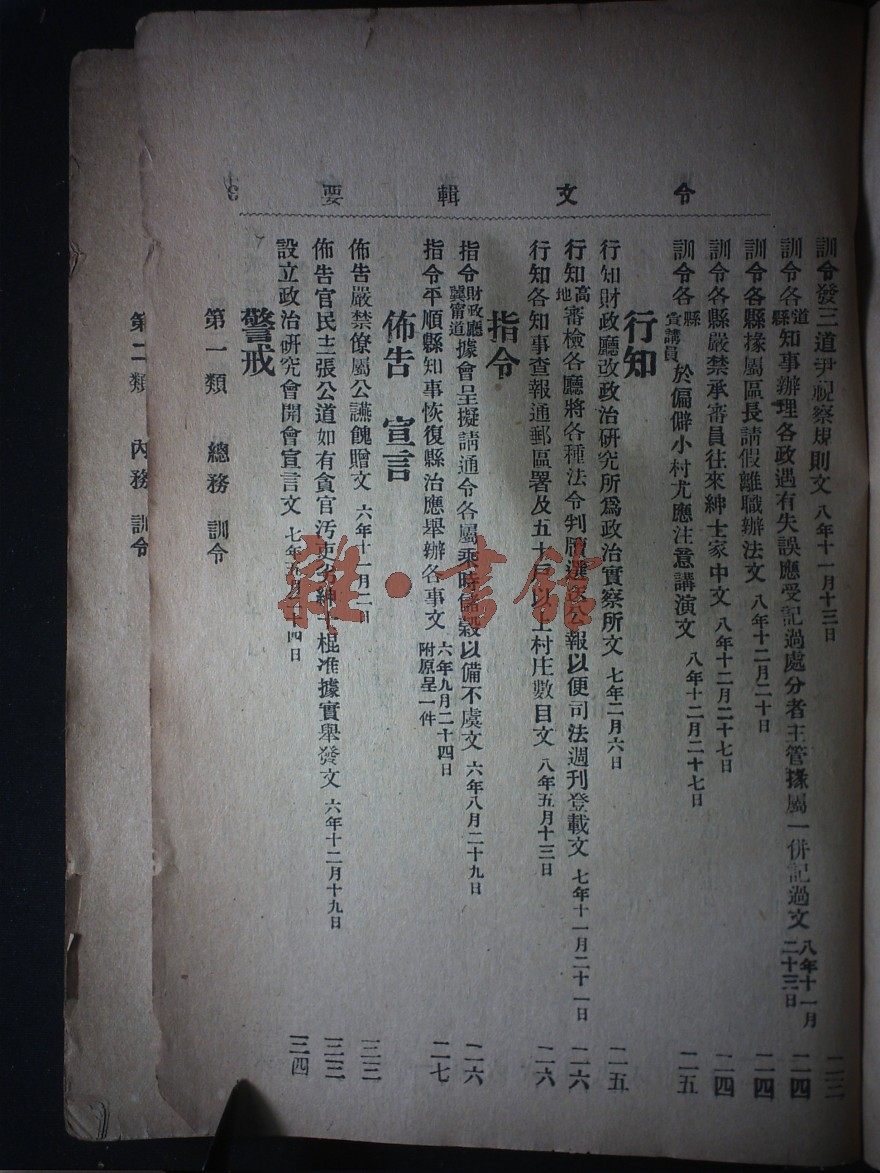 令文輯要
訓令發三道尹視察規則文 八年十一月十三日
訓令各道縣知事辦理各政遇有失誤應受記過處分者主管掾屬一併記過文 八年十一月二十三日 二四
訓令各縣掾屬區長請假離職辦法文 八年十二月二十日 二四
訓令各縣嚴禁承審員往來紳士家中文 八年十二月二十七日 二四
訓令各縣宣講員於偏僻小村尤應注意講演文 八年十二月二十七日 二五
行知
行知財政廳改政治研究所爲政治實察所文 七年二月六日 二五
行知高地審檢各廳將各種法令判牘選登公報以便司法週刊登載文 七年十一月二十一日 二六
行知各知事查報通郵區署及五十戶以上村庄數目文 八年五月十三日 二六
指令
指令財政廳冀甯道據會呈擬請通令各屬乘時儲穀以備不虞文 六年八月二十九日 二六
指令平順縣知事恢復縣治應舉辦各事文 六年九月二十四日 附原呈一件 二七
佈告 宣言
佈告嚴禁僚屬公讌餽贈文 六年十一月二日 三三
佈告官民主張公道如有貪官汚吏劣紳土棍准據實舉發文 六年十二月十九日 三三
設立政治研究會開會宣言文 七年五月二十四日 三四
警戒
第一類 總務 訓令
第二類 內務 訓令
雜·書館